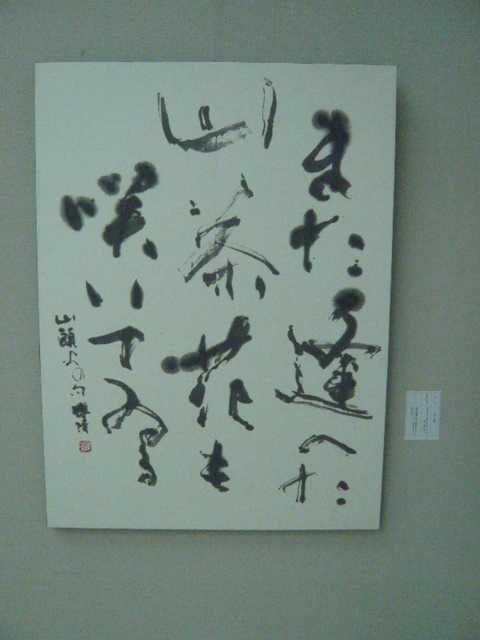 また逢へた
山茶花も
咲いてゐる
山頭火の句